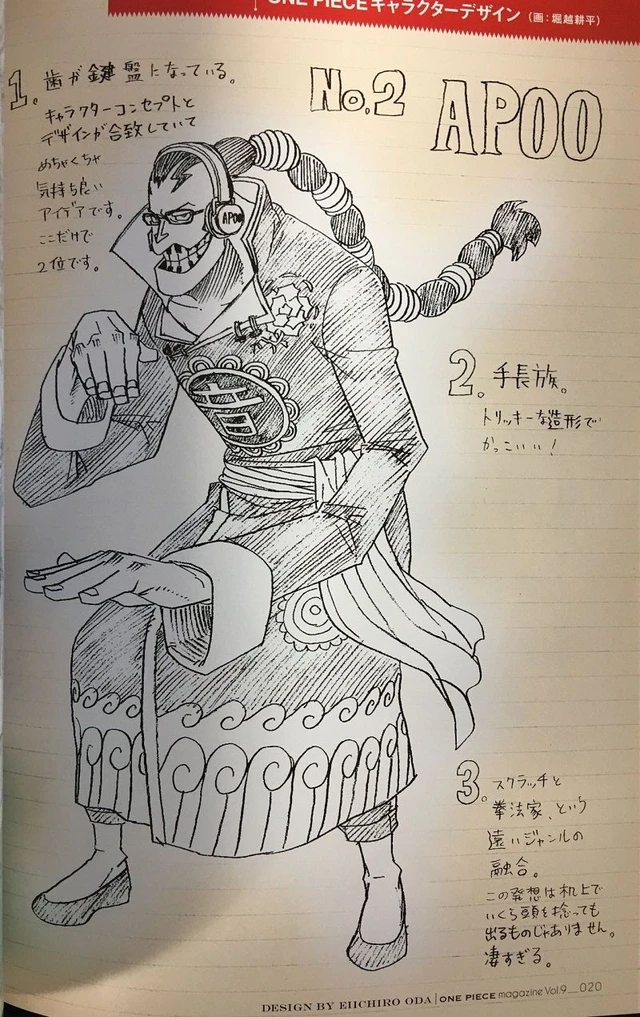 ONE PIECEキャラクターデザイン (画:堀越耕平)
No.2 APOO
1. 歯が鍵盤になっている。
キャラクターコンセプトと
デザインが合致していて
めちゃくちゃ
気持ち良い
アイデアです。
ここだけで
2位です。
APOO
2. 手長族。
トリッキーな造形で
かっこいい!
3. スクラッチと
拳法家、という
遠いジャンルの
融合。
この発想は机上で
いくら頭を捻っても
出るものじゃありません。
凄すぎる。
DESIGN BY EIICHIRO ODA | ONE PIECE magazine Vol.9__020